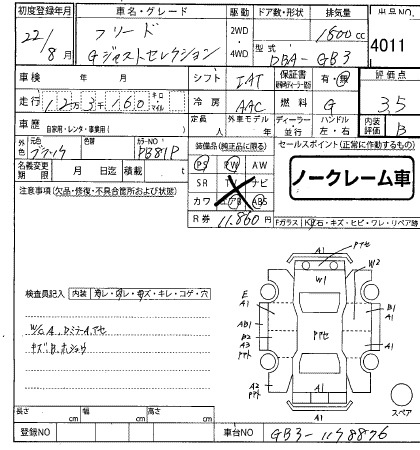 初度登録年月 車名・グレード 駆動 ドア数・形状 排気量 出品NO.
22/8月 フリード Gジャストセレクション 2WD 4WD 1500cc 4011
型式 DBA-GB3
車検 年 月 シフト IAT 保証書 有・無 評価点
走行 12万3千160 キロ・マイル 冷房 AAC 燃料 G 3.5
車歴 自家用・レンタ・事業用( ) 定員 人 外車モデル 年 ディーラー 並行 ハンドル 左・右 内装評価 B
外色 元色 ブラック 色替 カラーNO PB81P 装備品(純正品に限る) セールスポイント(正常に作動するもの)
名義変更期限 月 日迄 積載 t PS PW AW ノークレーム車
注意事項(欠品・修復・不具合箇所および状態) SR TV ナビ
カワ エアB ABS
R券 11,860円 Fガラス
検査員記入 内装
W/C A, Dミラー A, アセ
キズ B, ホショウ
A1
Pアセ
W1 W2
E A1 B1 A1
AB1 Pアセ
B2 A3
A2
A1
スペア
長さ cm 幅 cm 高さ cm
登録NO 車台NO GB3-1158876